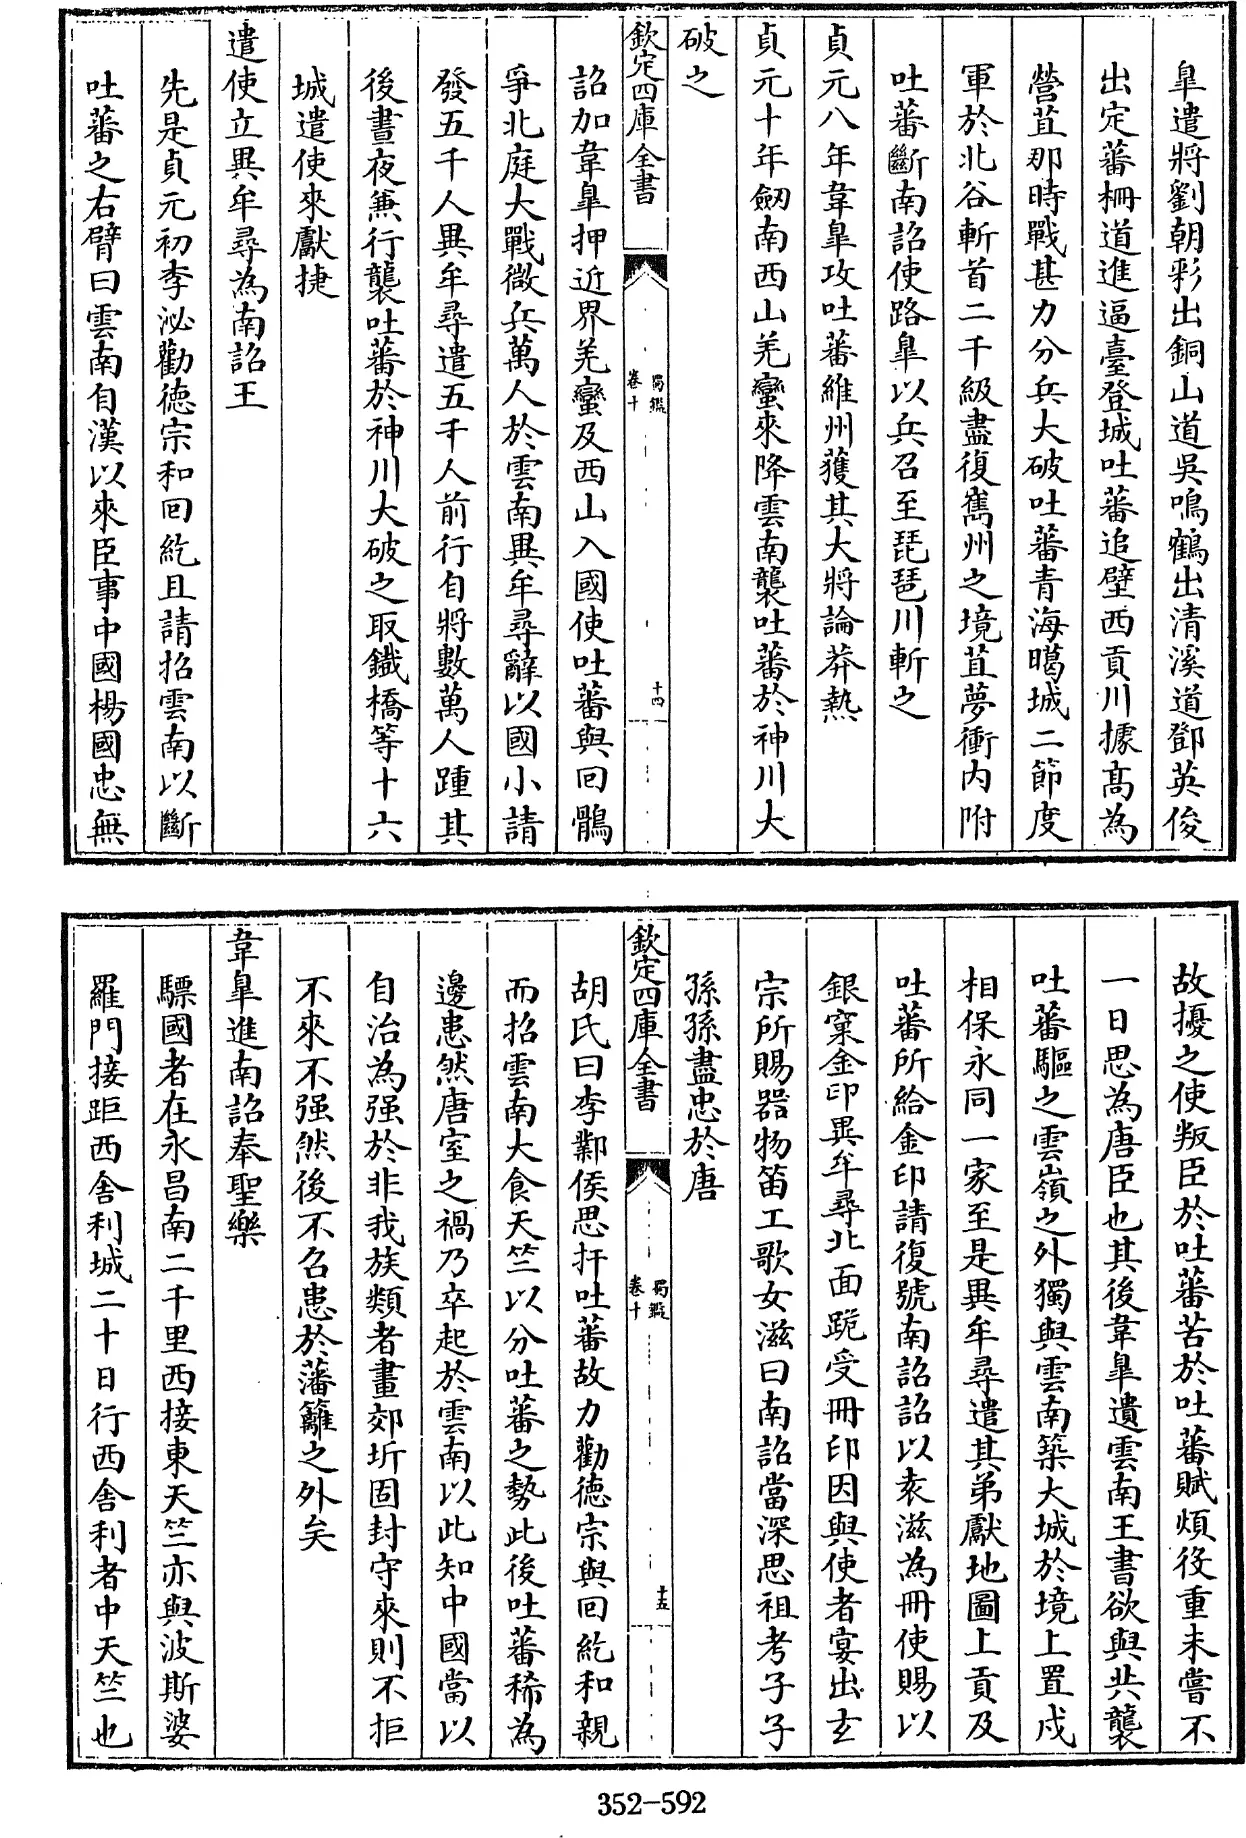 臯遣將劉朝彩出銅山道吳鳴鶴出清溪道鄧英俊
出定蕃柵道進逼臺登城吐蕃追壁西貢川據髙為
營苴那時戰甚力分兵大破吐蕃青海曷城二節度
軍於北谷斬首二千級盡復嶲州之境苴夢衝内附
吐蕃斷南詔使路臯以兵召至琵琶川斬之
貞元八年韋臯攻吐蕃維州獲其大將論莽熱
貞元十年劔南西山羌蠻來降雲南襲吐蕃於神川大
破之
欽定四庫全書
蜀鑑
卷十
十四
詔加韋臯押近界羌蠻及西山入國使吐蕃與回鶻
爭北庭大戰徴兵萬人於雲南異牟尋辭以國小請
發五千人異牟尋遣五千人前行自將數萬人踵其
後晝夜兼行襲吐蕃於神川大破之取鐵橋等十六
城遣使來獻捷
遣使立異牟尋為南詔王
先是貞元初李泌勸徳宗和回紇且請招雲南以斷
吐蕃之右臂曰雲南自漢以來臣事中國楊國忠無
故擾之使叛臣於吐蕃苦於吐蕃賦煩役重未嘗不
一日思為唐臣也其後韋臯遺雲南王書欲與共襲
吐蕃驅之雲嶺之外獨與雲南築大城於境上置戍
相保永同一家至是異牟尋遣其弟獻地圖土貢及
吐蕃所給金印請復號南詔詔以袁滋為冊使賜以
銀窠金印異牟尋北面跪受冊印因與使者宴出𤣥
宗所賜器物笛工歌女滋曰南詔當深思祖考子子
孫孫盡忠於唐
欽定四庫全書
蜀鑑
卷十
十五
胡氏曰李鄴侯思扞吐蕃故力勸徳宗與回紇和親
而招雲南大食天竺以分吐蕃之勢此後吐蕃稀為
邊患然唐室之禍乃卒起於雲南以此知中國當以
自治為强於非我族類者畫郊圻固封守來則不拒
不來不强然後不召患於藩籬之外矣
韋臯進南詔奉聖樂
驃國者在永昌南二千里西接東天竺亦與波斯婆
羅門接距西舍利城二十日行西舍利者中天竺也
352-592